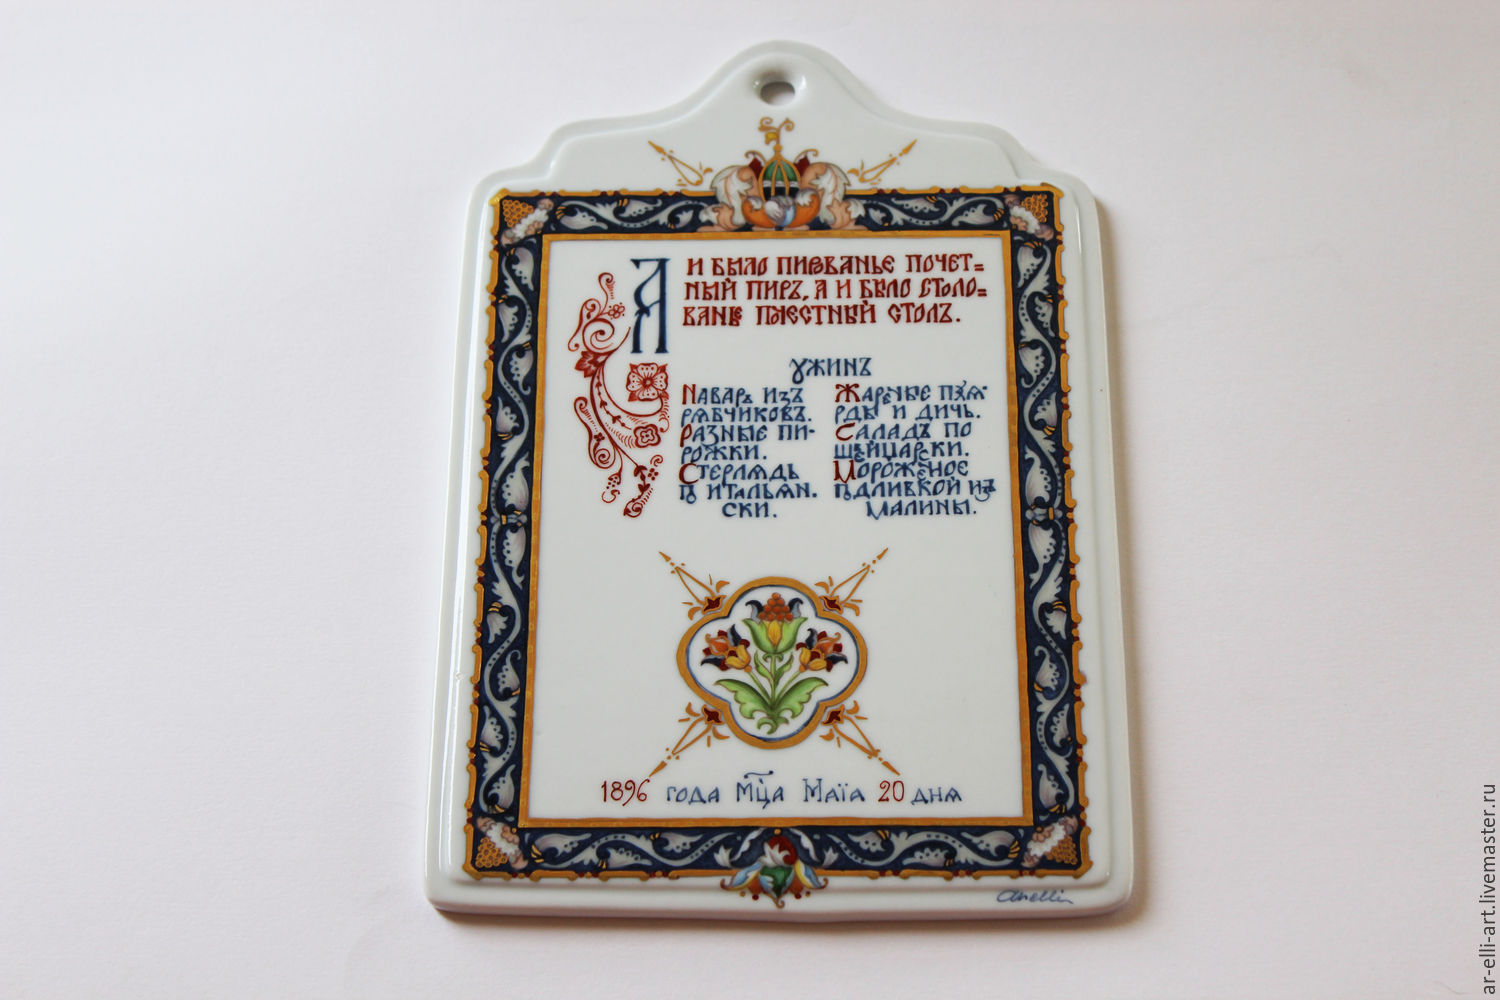 А И БЫЛО ПИРОВАНЬЕ ПОЧЕТ=
НЫЙ ПИРЪ, А И БЫЛО СТОЛО=
ВАНЬЕ ПОЧЕСТНЫЙ СТОЛЪ.
УЖИНЪ
НАВАРЪ ИЗЪ
РЯБЧИКОВЪ.
РАЗНЫЕ ПИ-
РОЖКИ.
СТЕРЛЯДЬ
ПО ИТАЛЬЯН.
СКИ.
ЖАРЕНЫЕ ПУЛЯ-
РДЫ И ДИЧЬ.
САЛАДЪ ПО
ШВЕЙЦАРСКИ.
МОРОЖЕНОЕ
ПОДЛИВКОЙ ИЗЪ
МАЛИНЫ.
1896 года Мц҃а Маїа 20 дня
Anelli
ar-elli-art.livemaster.ru